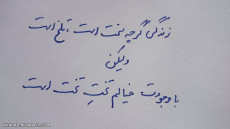 زندگی گرچه سخت است، تلخ است
ولیکن
با وجودت خیالم تختِ تخت است